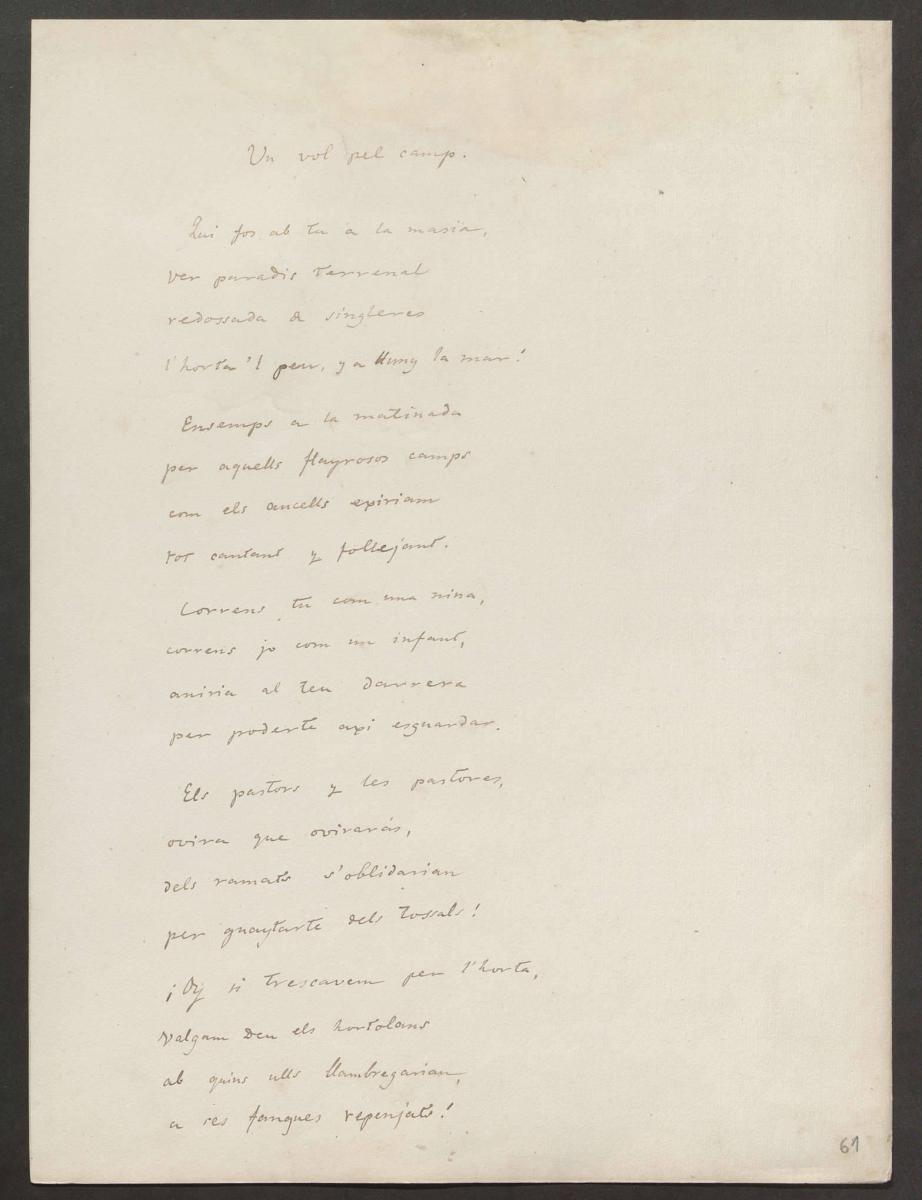 Un vol pel camp.
Qui fos ab tu a la masia,
ver paradis terrenal
redossada de singleres
l'horta 'l peu, y a lluny la mar!
Ensemps a la matinada
per aquells flayrosos camps
com els aucells expiriam
tot cantant y follejant.
Correns tu com una nina,
correns jo com un infant,
aniria al teu darrera
per poderte axi esguardar.
Els pastors y les pastores,
ovira que ovirarás,
dels ramats s'oblidarian
per guaytarte dels tossals!
¡Oy si trescavem per l'horta,
Valgam Deu els hortolans
ab quins ulls llambregarian,
a ses fangues repenjats!
61